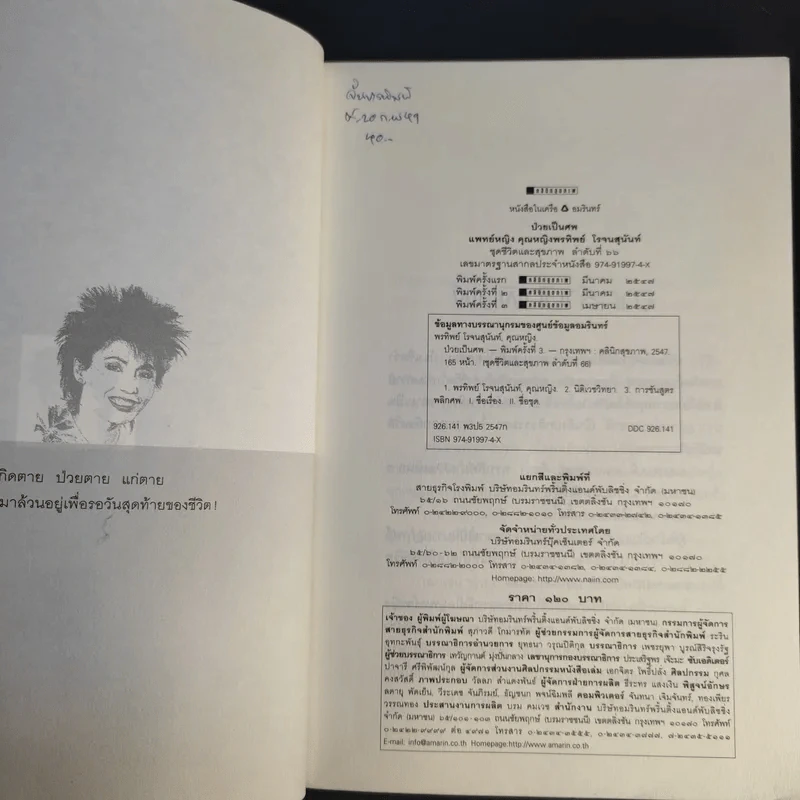 กิดตาย ป่วยตาย แก่ตาย
มาล้วนอยู่เพื่อรอวันสุดท้ายของชีวิต!
๔๐.-
คลินิกสุขภาพ
หนังสือในเครือ อมรินทร์
ป่วยเป็นศพ
แพทย์หญิง คุณหญิงพรทิพย์ โรจนสุนันท์
ชุดชีวิตและสุขภาพ ลำดับที่ ๖๖
เลขมาตรฐานสากลประจำหนังสือ 974-91997-4-X
พิมพ์ครั้งแรก คลินิกสุขภาพ มีนาคม ๒๕๔๗
พิมพ์ครั้งที่ ๒ คลินิกสุขภาพ มีนาคม ๒๕๔๗
พิมพ์ครั้งที่ ๓ คลินิกสุขภาพ เมษายน ๒๕๔๗
ข้อมูลทางบรรณานุกรมของศูนย์ข้อมูลอมรินทร์
พรทิพย์ โรจนสุนันท์, คุณหญิง.
ป่วยเป็นศพ. — พิมพ์ครั้งที่ 3. — กรุงเทพฯ : คลินิกสุขภาพ, 2547.
165 หน้า. (ชุดชีวิตและสุขภาพ ลำดับที่ 66)
1. พรทิพย์ โรจนสุนันท์, คุณหญิง. 2. นิติเวชวิทยา. 3. การชันสูตร
พลิกศพ. I. ชื่อเรื่อง. II. ชื่อชุด.
926.141 พ3ป5 2547ก DDC 926.141
ISBN 974-91997-4-X
แยกสีและพิมพ์ที่
สายธุรกิจโรงพิมพ์ บริษัทอมรินทร์พริ้นติ้งแอนด์พับลิชชิ่ง จำกัด (มหาชน)
๖๕/๑๖ ถนนชัยพฤกษ์ (บรมราชชนนี) เขตตลิ่งชัน กรุงเทพฯ ๑๐๑๗๐
โทรศัพท์ ๐-๒๔๒๒-๙๐๐๐, ๐-๒๘๘๒-๑๐๑๐ โทรสาร ๐-๒๔๓๓-๒๗๔๒, ๐-๒๔๓๔-๑๓๘๕
จัดจำหน่ายทั่วประเทศโดย
บริษัทอมรินทร์บุ๊คเซ็นเตอร์ จำกัด
๖๕/๖๐-๖๒ ถนนชัยพฤกษ์ (บรมราชชนนี) เขตตลิ่งชัน กรุงเทพฯ ๑๐๑๗๐
โทรศัพท์ ๐-๒๘๘๒-๒๐๐๐ โทรสาร ๐-๒๔๓๔-๑๓๘๒, ๐-๒๔๓๔-๑๓๘๔, ๐-๒๘๘๒-๒๒๕๕
Homepage: http://www.naiin.com
ราคา ๑๒๐ บาท
เจ้าของ ผู้พิมพ์ผู้โฆษณา บริษัทอมรินทร์พริ้นติ้งแอนด์พับลิชชิ่ง จำกัด (มหาชน) กรรมการผู้จัดการ
สายธุรกิจสำนักพิมพ์ สุภาวดี โกมารทัต ผู้ช่วยกรรมการผู้จัดการสายธุรกิจสำนักพิมพ์ ระริน
อุทกะพันธุ์ บรรณาธิการอำนวยการ ยุทธนา วรุณปิติกุล บรรณาธิการ เพชรยุพา บูรณ์สิริจรุงรัฐ
ผู้ช่วยบรรณาธิการ เทวัญกานต์ มุ่งปั่นกลาง เลขานุการกองบรรณาธิการ ประเสริฐพร เจ๊ะมะ ซับเอดิเตอร์
ปาจารี ศรีพิพัฒน์กุล ผู้จัดการส่วนงานศิลปกรรมหนังสือเล่ม เอกจิตร โพธิ์ปลั่ง ศิลปกรรม กุศล
คงสวัสดิ์ ภาพประกอบ วัลลภ สำแดงพันธ์ ผู้จัดการฝ่ายการผลิต ธีระทร แสงเงิน พิสูจน์อักษร
ลดายุ พัดเย็น, วีระเดช จันภิรมย์, ธัญชนก พจน์ฉิมพลี คอมพิวเตอร์ จันทนา เจิมจันทร์, ทองเพียร
วรรณทอง ประสานงานการผลิต บรม คมเวช สำนักงาน บริษัทอมรินทร์พริ้นติ้งแอนด์พับลิชชิ่ง
จำกัด (มหาชน) ๖๕/๑๐๑-๑๐๓ ถนนชัยพฤกษ์ (บรมราชชนนี) เขตตลิ่งชัน กรุงเทพฯ ๑๐๑๗๐ โทรศัพท์
๐-๒๔๒๒-๙๙๙๙ ต่อ ๔๙๗๑ โทรสาร ๐-๒๔๓๔-๓๕๕๕, ๐-๒๔๓๔-๓๗๗๗, ๗-๒๔๓๕-๕๑๑๑
E-mail: info@amarin.co.th Homepage:http://www.amarin.co.th